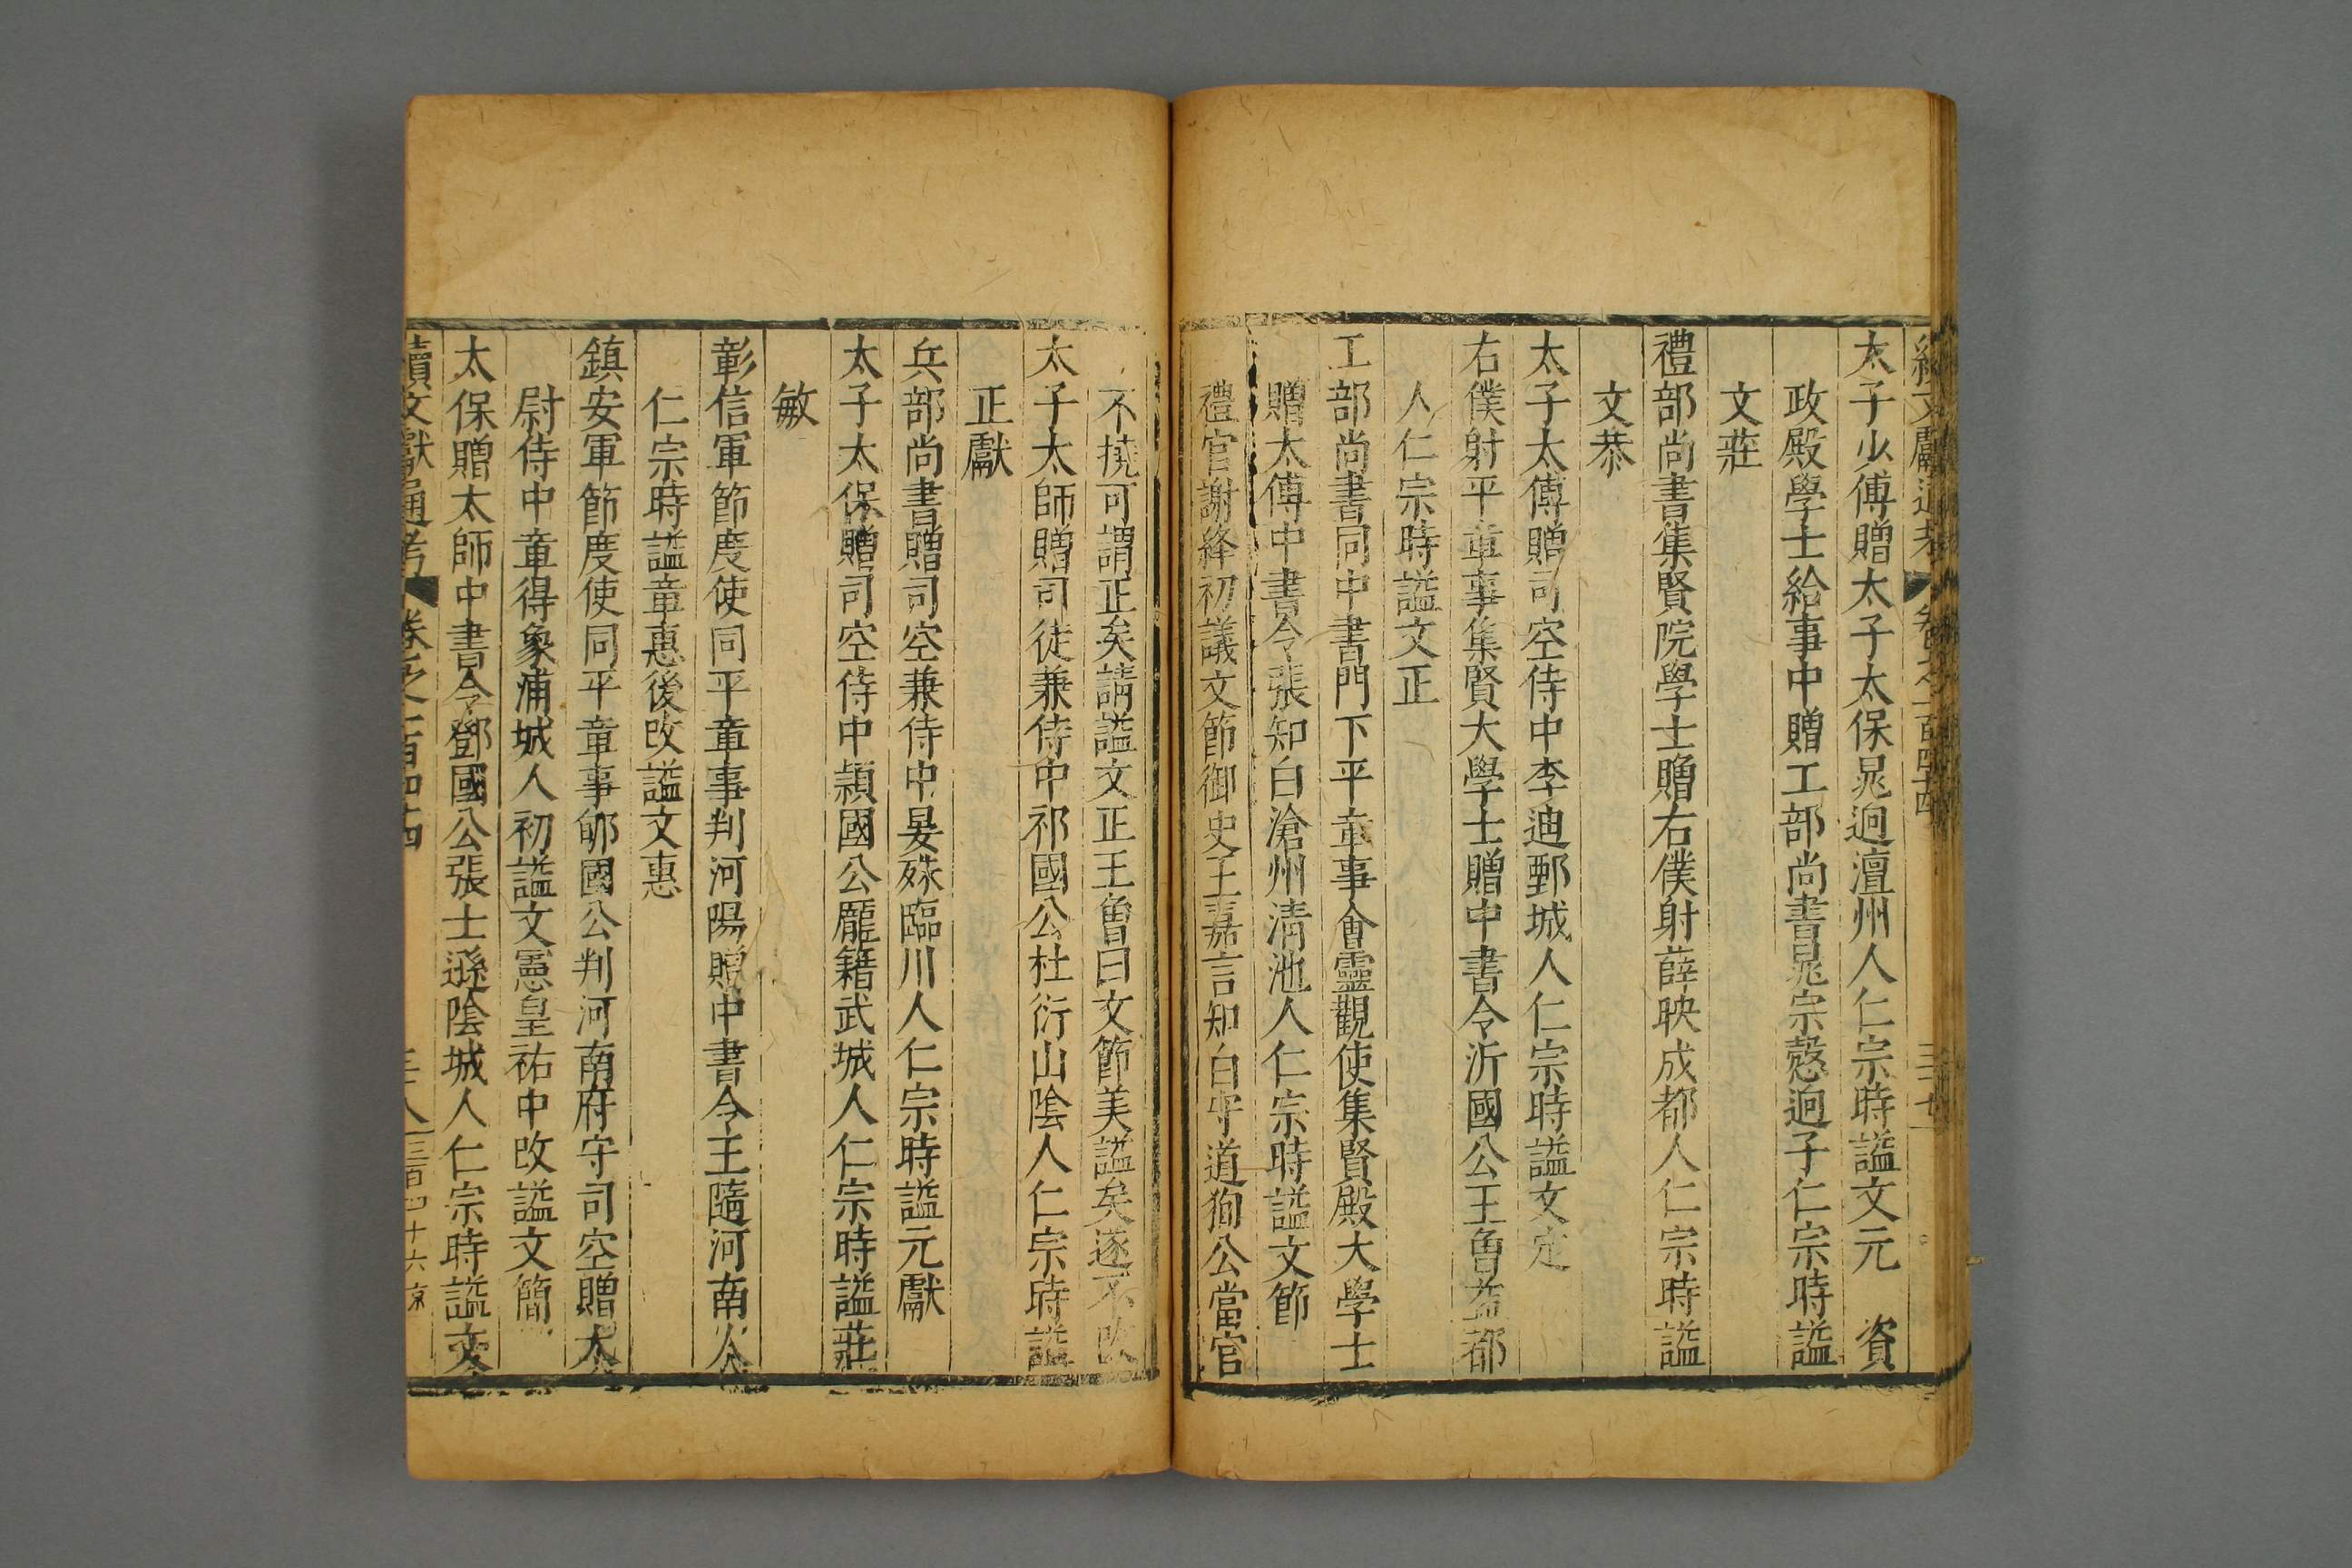 續文獻通考 卷之一百四十四 三十七
太子少傅贈太子太保晁迥澶州人仁宗時謚文元 資
政殿學士給事中贈工部尚書晁宗慤迥子仁宗時謚
文莊
禮部尚書集賢院學士贈右僕射薛映成都人仁宗時謚
文恭
太子太傅贈司空侍中李迪鄄城人仁宗時謚文定
右僕射平章事集賢大學士贈中書令沂國公王曾益都
人仁宗時謚文正
工部尚書同中書門下平章事會靈觀使集賢殿大學士
贈太傅中書令張知白滄州清池人仁宗時謚文節
禮官謝絳初議文節御史王嘉言知白守道徇公當官
不撓可謂正矣請謚文正王曾曰文節美謚矣遂不改
太子太師贈司徒兼侍中祁國公杜衍山陰人仁宗時謚
正獻
兵部尚書贈司空兼侍中晏殊臨川人仁宗時謚元獻
太子太保贈司空侍中潁國公龐籍武城人仁宗時謚莊
敏
彰信軍節度使同平章事判河陽贈中書令王隨河南人
仁宗時謚章惠後改謚文惠
鎮安軍節度使同平章事郇國公判河南府守司空贈太
尉侍中章得象浦城人初謚文憲皇祐中改謚文簡
太保贈太師中書令鄧國公張士遜陰城人仁宗時謚文
續文獻通考 卷之一百四十四 三十八 三百四十六